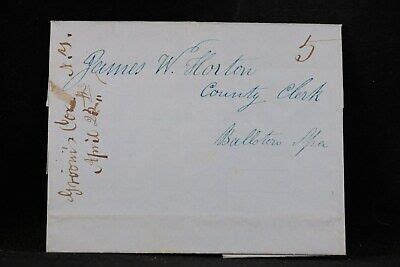 5
James W. Horton
County Clerk
Ballston Spa
Groom's Cor N.Y.
April 22